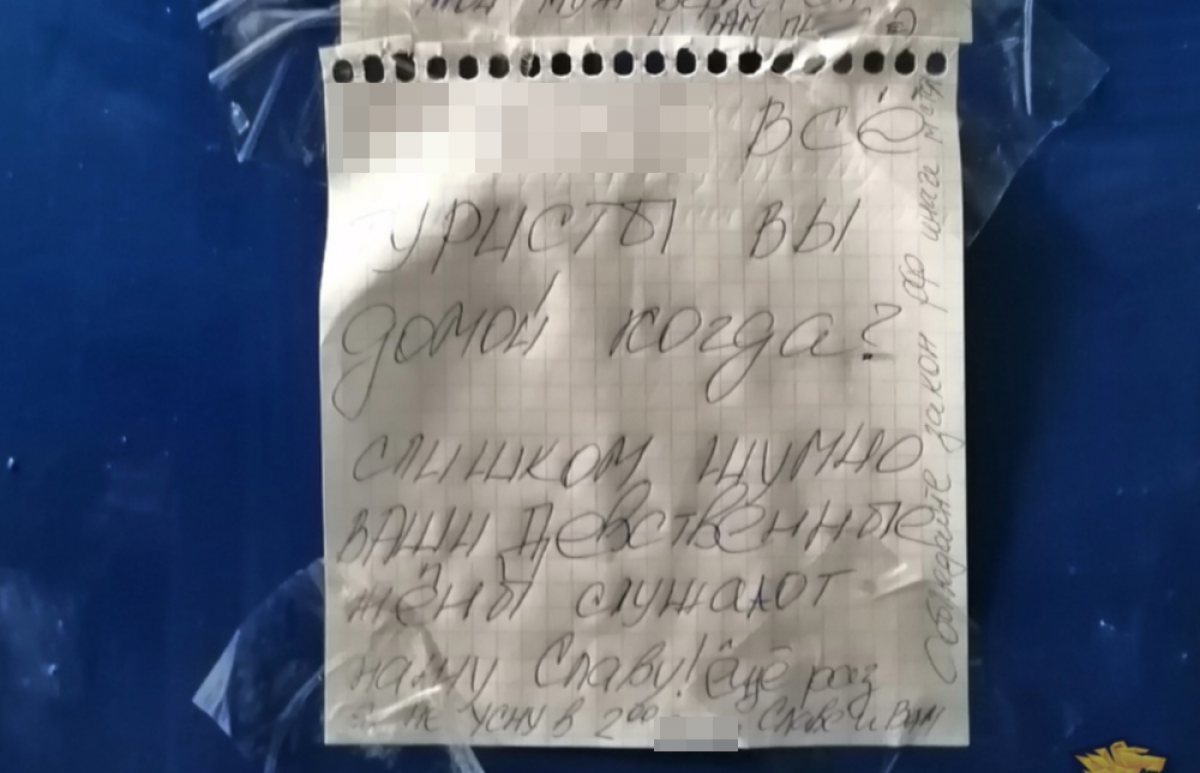 мой муж вернётся
и вам
всё
туристы вы
домой когда?
слишком шумно
ваши девственные
жёны слушают
нашу Славу! ещё раз
не усну в 2⁰⁰ Славе и Вам
Соблюдайте закон рф иначе